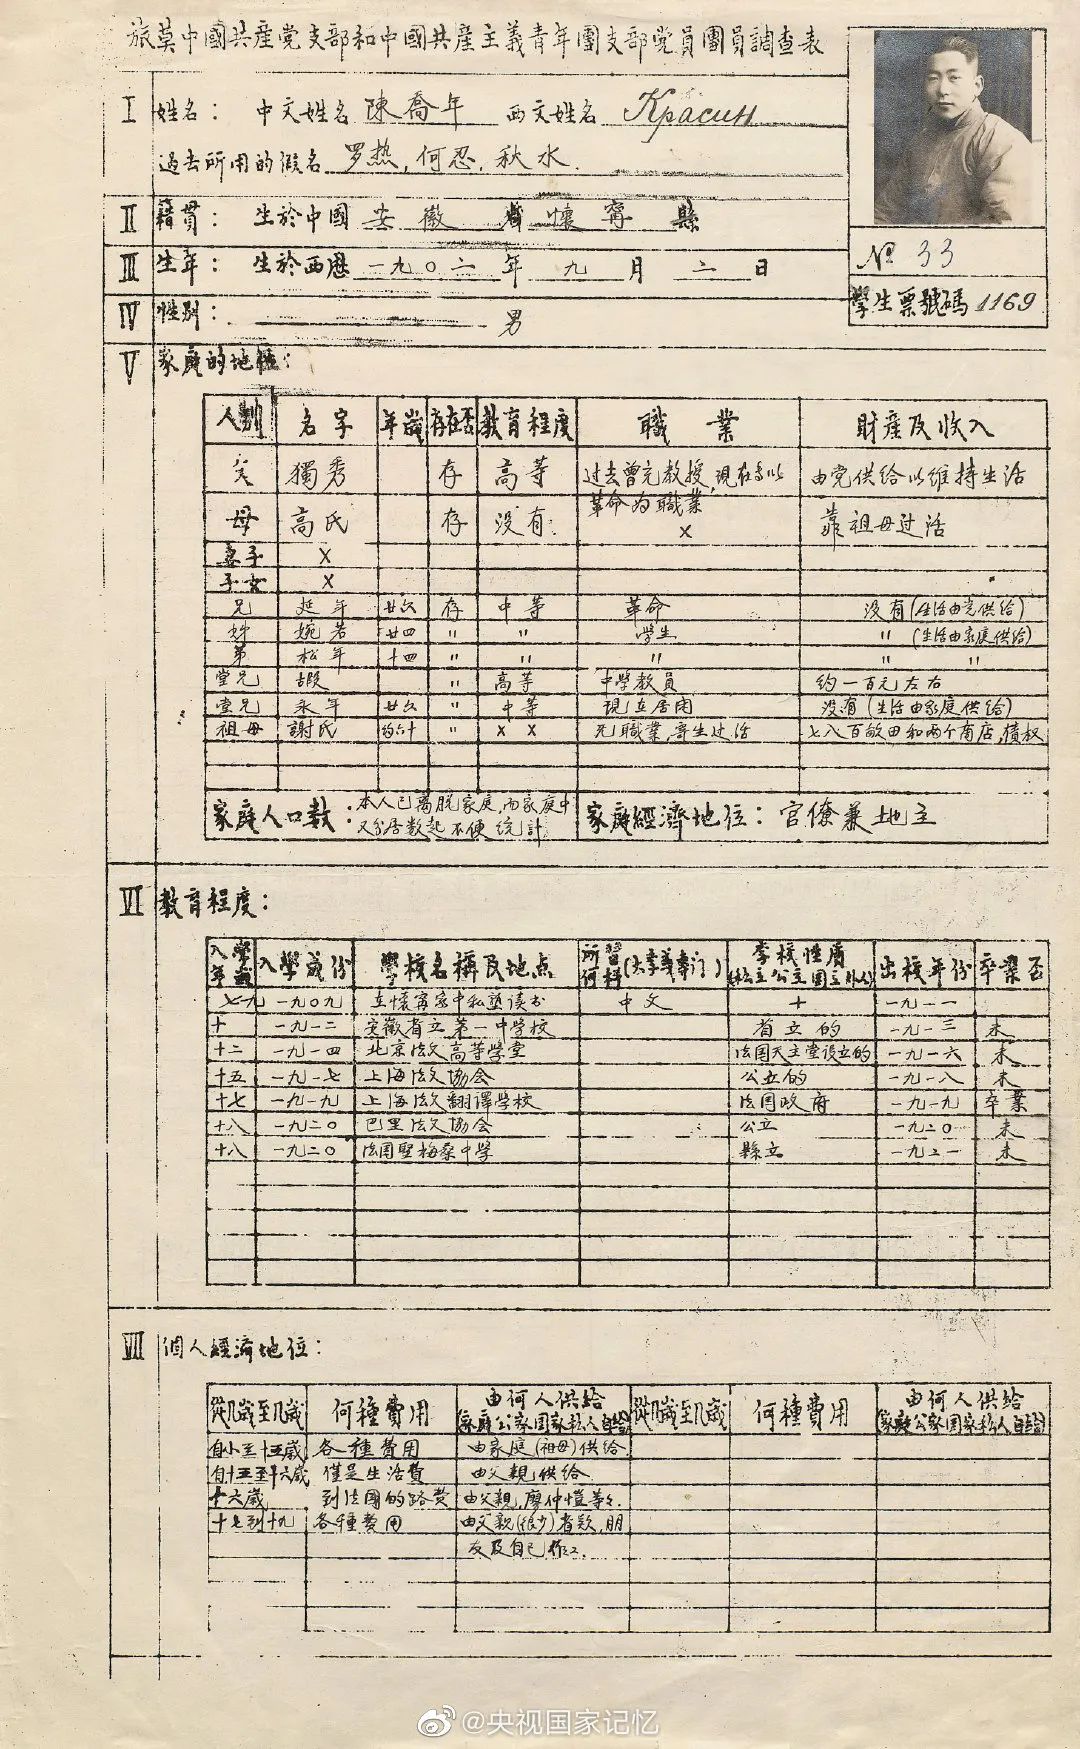 旅莫中國共產党支部和中國共產主義青年團支部党員團員調查表
I 姓名： 中文姓名 陳喬年 西文姓名 Красин
過去所用的假名 罗热，何忍，秋水.
II 籍貫： 生於中國 安徽 省 懷寧 縣
III 生年： 生於西曆 一九〇二 年 九 月 二 日
№ 33
IV 性别： 男
學生票號碼 1169
V 家庭的地位：
人别 名字 年歲 存在否 教育程度 職業 財產及收入
父 獨秀 存 高等 过去曾充教授，現在专以革命为職業 由党供给以维持生活
母 高氏 存 没有. x 靠祖母过活
妻子 x
子女 x
兄 延年 廿六 存 中等 革命 没有(生活由党供给)
姊 婉若 廿四 〃 〃 学生 〃 (生活由家庭供给)
弟 松年 十四 〃 〃 〃 〃 〃
堂兄 遐 〃 高等 中学教員 约一百元左右
堂兄 永年 廿六 〃 中等 現在居闭 没有(生活由家庭供给)
祖母 謝氏 约六十 〃 x x 无職業，寄生过活 七八百畝田和两个商店，债权
家庭人口数： 本人已离脱家庭，而家庭中又分居数起不便统計 家庭經濟地位： 官僚兼地主
VI 教育程度：
入學年歲 入學年份 學校名稱及地点 所習何科(大學義專门) 學校性质(私立公立国立外人) 出校年份 卒業否
七九 一九〇九 在懷寧家中私塾读书 中文 十 一九一一
十 一九一二 安徽省立第一中学校 省立的 一九一三 未
十二 一九一四 北京法文高等学堂 法国天主堂设立的 一九一六 未
十五 一九一七 上海法文協会 公立的 一九一八 未
十七 一九一九 上海法文翻譯学校 法国政府 一九一九 卒業
十八 一九二〇 巴里法文協会 公立 一九二〇 未
十八 一九二〇 法国聖梅桑中学 縣立 一九二一 未
VII 個人經濟地位：
從几歲至几歲 何種費用 由何人供給(家庭公家国家私人自给) 從几歲至几歲 何種費用 由何人供給(家庭公家国家私人自给)
自小至十五歲 各種費用 由家庭(祖母)供给
自十五至十六歲 僅是生活費 由父親供给
十六歲 到法國的路费 由父親，廖仲愷等々.
十七到十九 各種費用 由父親(很少)者欵，朋友及自己作工.
@央视国家记忆